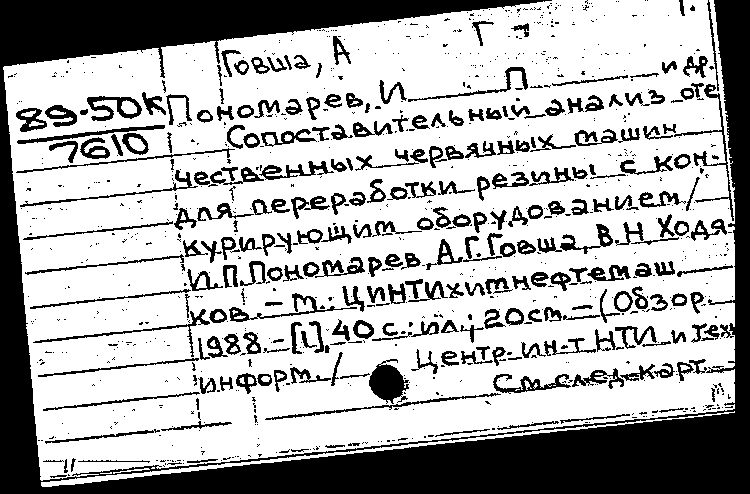 Г.
Говша, А Г
89-50К Пономарев, И П и др.
7610
Сопоставительный анализ оте
чественных червячных машин
для переработки резины с кон-
курирующим оборудованием /
И.П. Пономарев, А.Г. Говша, В.Н Ходя-
ков. - М.: ЦИНТИхимнефтемаш,
1988. - [1], 40 с.: ил.; 20см. - (Обзор.
информ. / Центр. ин-т НТИ и техн
См след. карт.